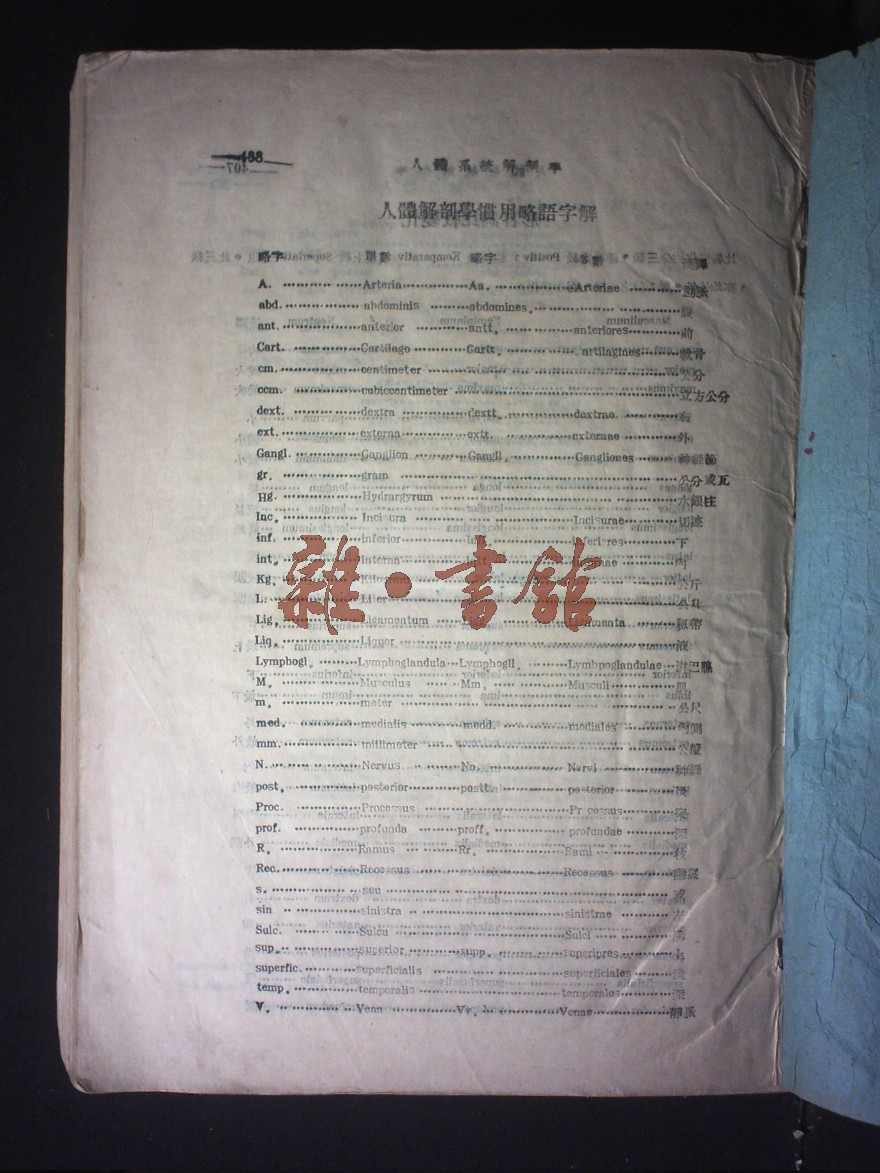 人體系統解剖學
人體解剖學慣用略語字解
略字 單數 略字 多數 漢譯
A. Arteria Aa. Arteriae 動脈
abd. abdominis abdomines. 腹
ant. anterior antt. anteriores 前
Cart. Cartilago Cartt. artilagines 軟骨
cm. centimeter 公分
ccm. cubiccentimeter 立方公分
dext. dextra dextt. dextrae 右
ext. externa extt. externae 外
Gangl. Ganglion Gangll. Gangliones 神經節
gr. gram 公分或瓦
Hg. Hydrargyrum 水銀柱
Inc. Incisura Incisurae 切迹
inf. inferior 下
int. interna 內
Kg. 公斤
L. Liter 公升
Lig. Ligamentum 韌帶
Liq. Liquor 液
Lymphogl. Lymphoglandula Lymphogll. Lymhpoglandulae 淋巴腺
M. Musculus Mm. Musculi 肌
m. meter 公尺
med. medialis medd. mediales 內側
mm. millimeter
N. Nervus Nn. Nervi 神經
post. posterior postt. posterior 後
Proc. Processus Pr cessus 突
prof. profunda proff. profundae 深
R. Ramus Rr. Rami 枝
Rec. Recessus Recessus
s. seu 或
sin sinistra sinistrae 左
Sulc. Sulcu Sulci 溝
sup. superior supp. superipres 上
superfic. superficialis superficiales 淺
temp. temporalis temporales
V. Vena Vv. Venae 靜脈
雜·書館